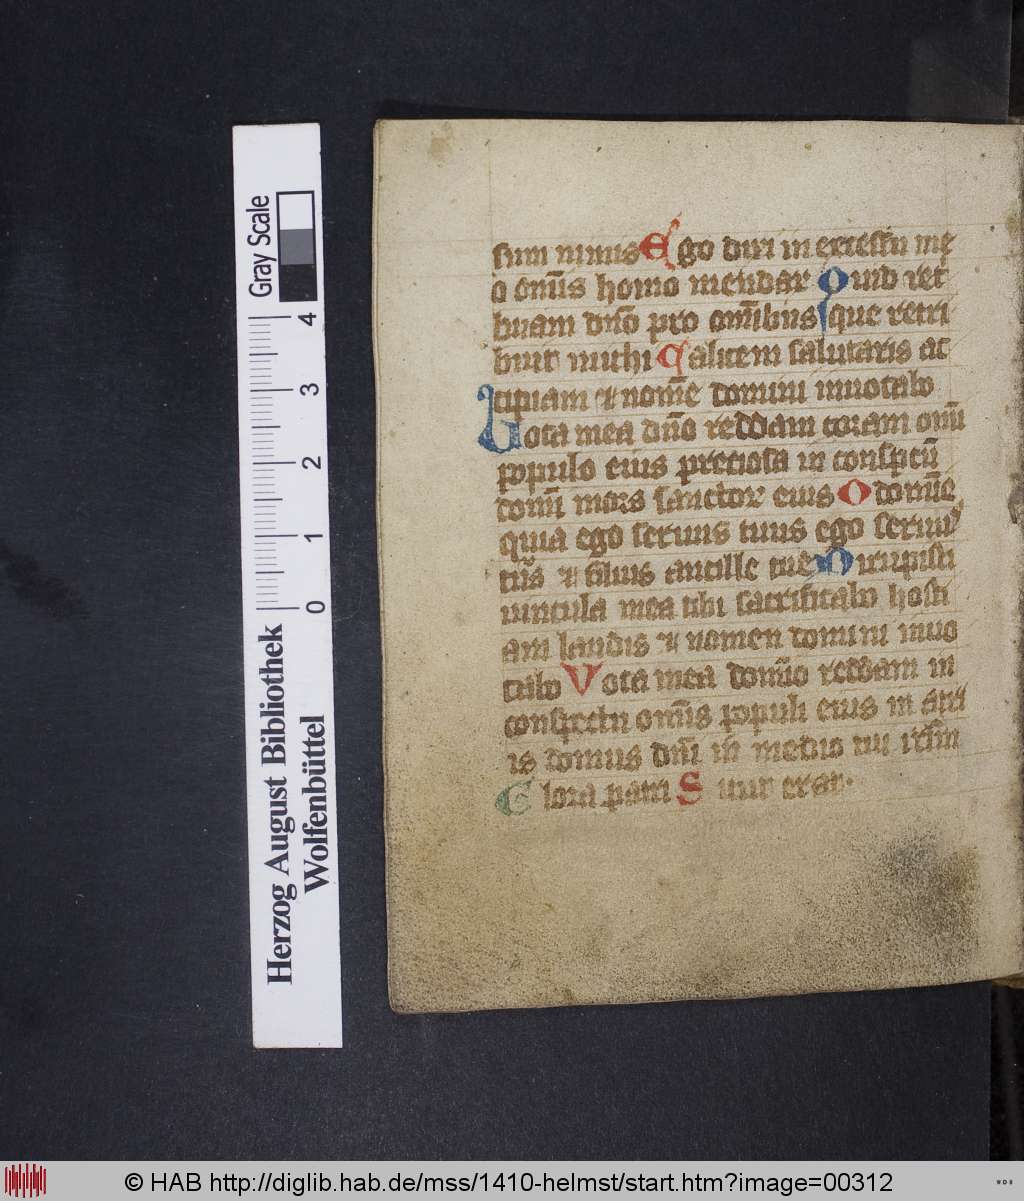 sum nimis Ego dixi in excessu me
o omīs homo mendax Quid ret
buam dn̄o pro om̄ibus que retri
buit michi Calicem salutaris ac
cipiam ⁊ nom̄e domini inuocabo
Vota mea dn̄o reddam coram omī
populo eius preciosa in conspcū
domī mors sanctoꝝ eius O domīe
quia ego seruus tuus ego seruus
tūs ⁊ filius ancille tue Dirupisti
uincula mea tibi sacrificabo hosti
am laudis ⁊ nomen domini inuo
cabo Vota mea domīo reddam in
conspectu omīs populi eius in atri
is domus dn̄i in medio tui irl̄m
Glora patri Sicut erat.
Gray Scale
4
3
2
1
0
Herzog August Bibliothek
Wolfenbüttel
© HAB http://diglib.hab.de/mss/1410-helmst/start.htm?image=00312